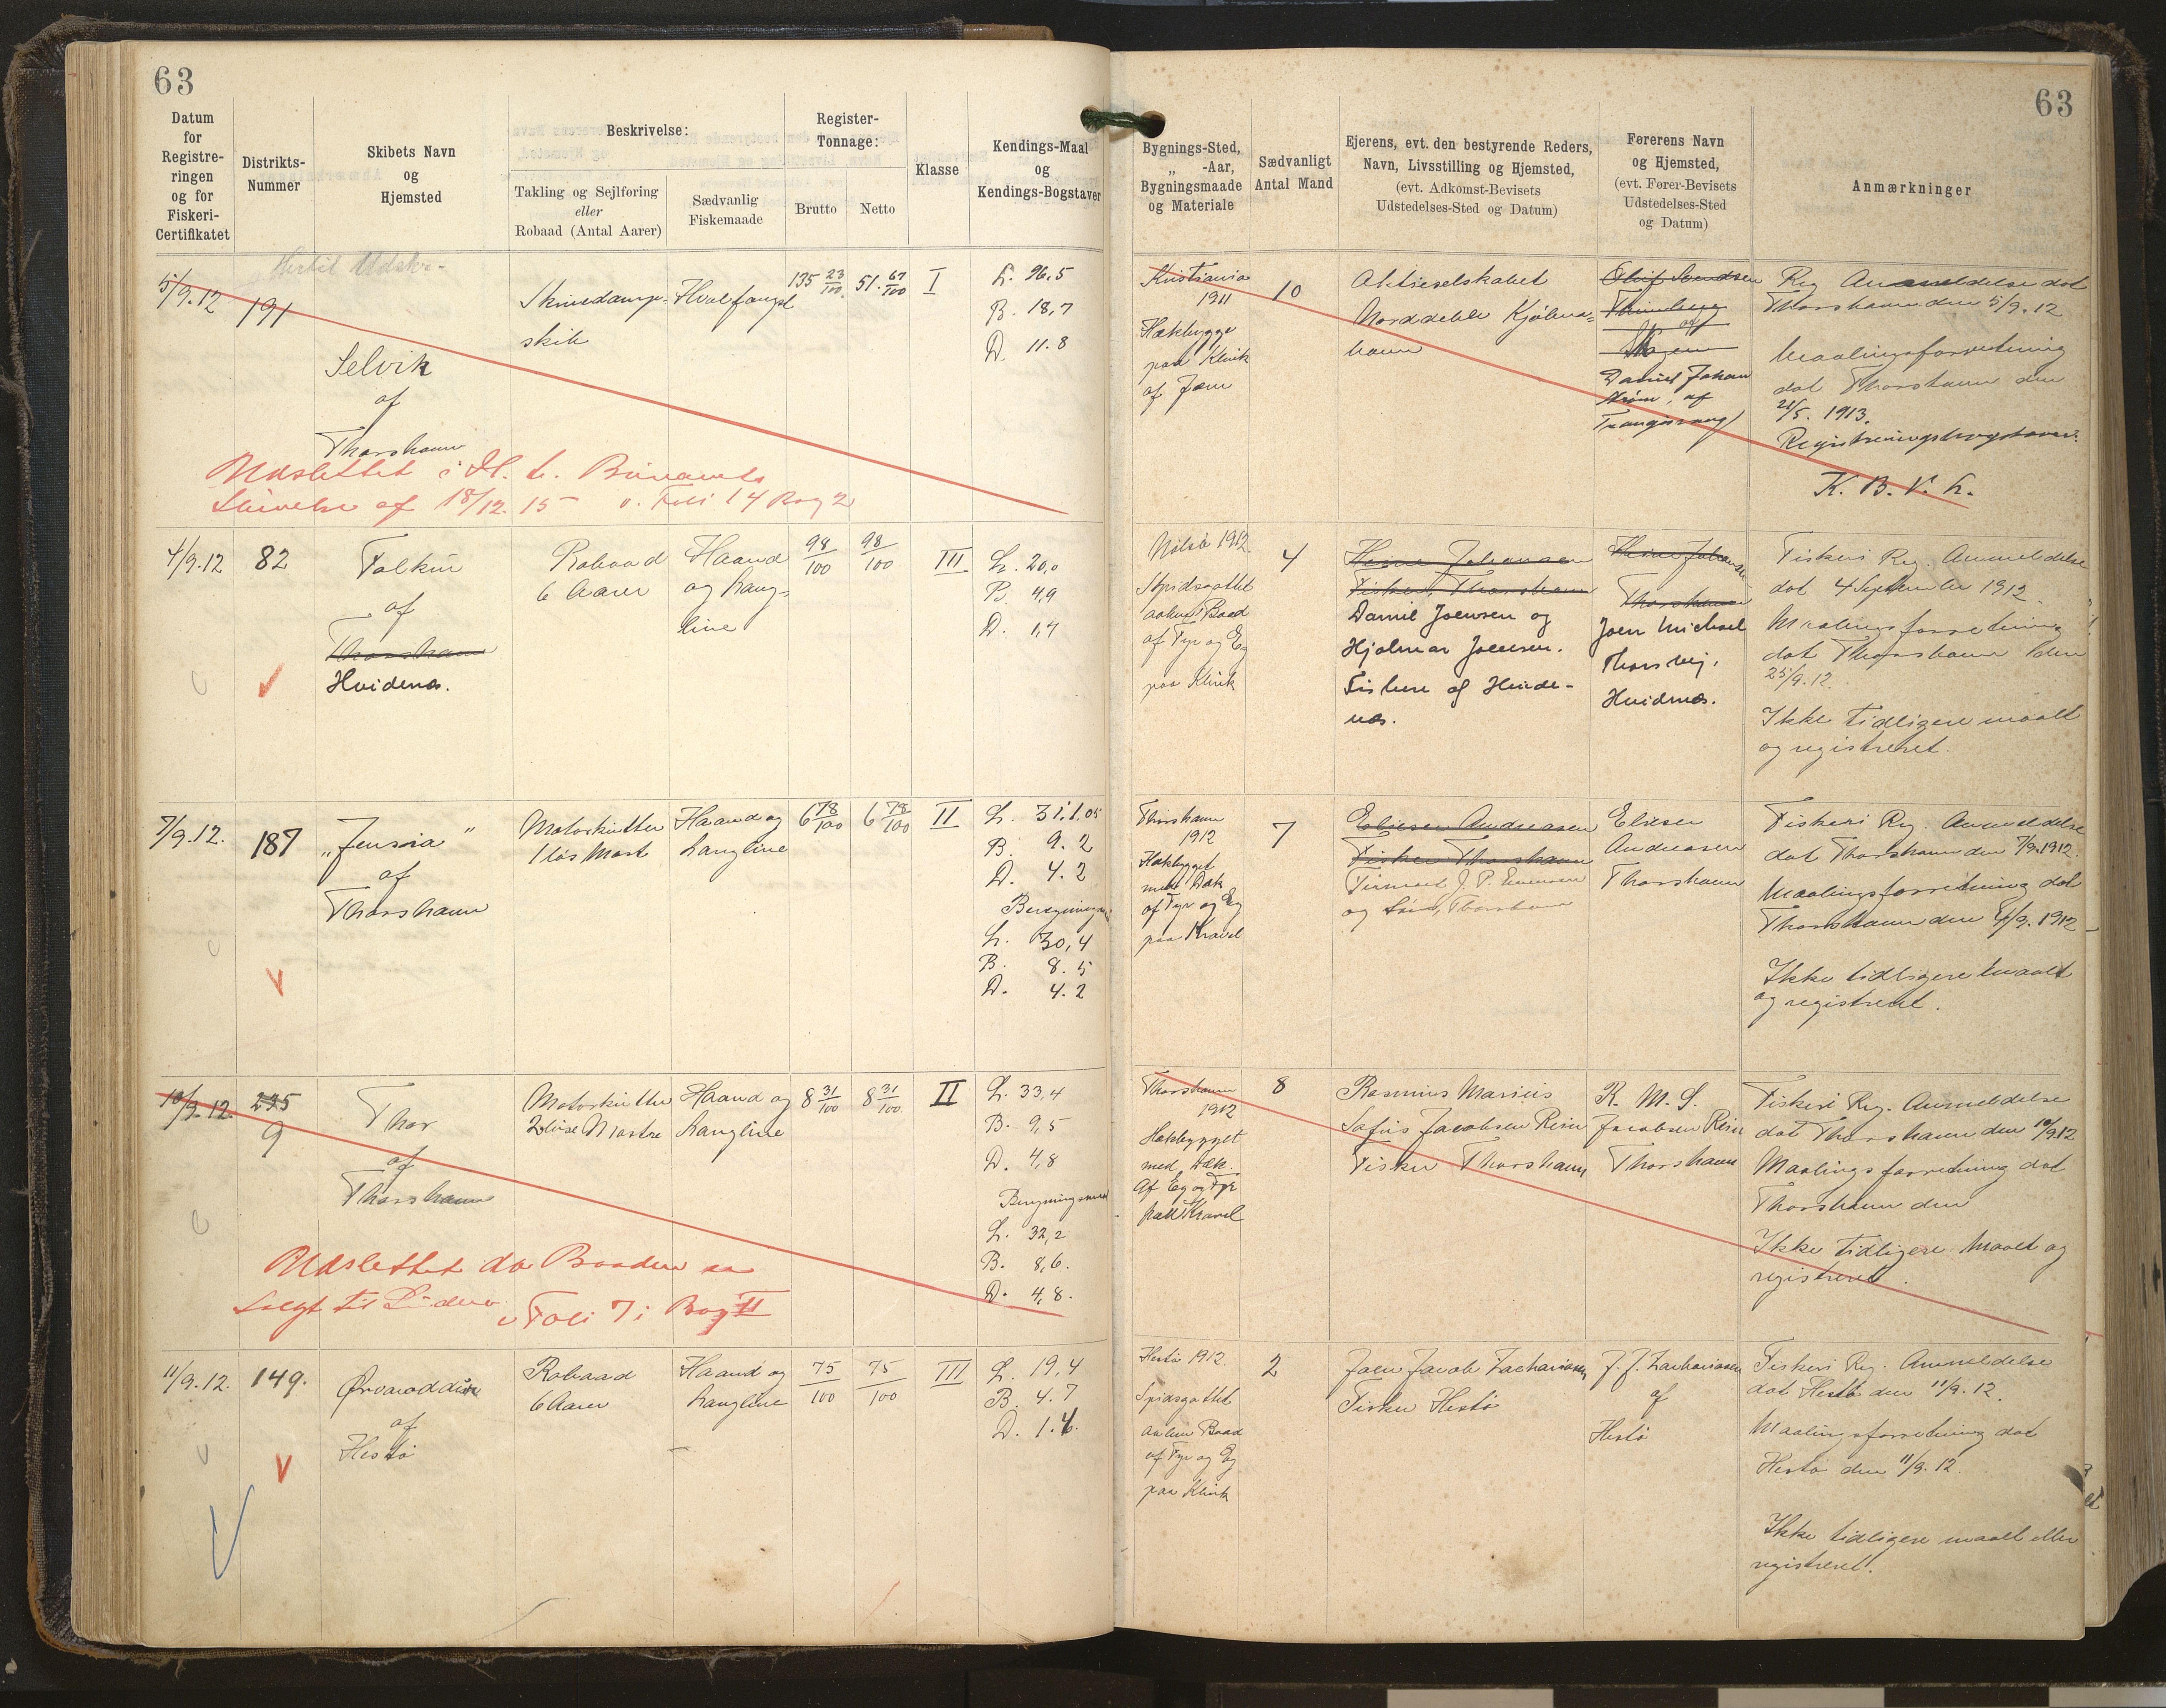 63
63
Datum for Registreringen og for Fiskeri-Certifikatet
Distrikts-Nummer
Skibets Navn og Hjemsted
Beskrivelse:
Takling og Sejlføring eller Robaad (Antal Aarer)
Sædvanlig Fiskemaade
Register-Tonnage:
Brutto
Netto
Klasse
Kendings-Maal og Kendings-Bogstaver
Bygnings-Sted, „ -Aar, Bygningsmaade og Materiale
Sædvanligt Antal Mand
Ejerens, evt. den bestyrende Reders, Navn, Livsstilling og Hjemsted, (evt. Adkomst-Bevisets Udstedelses-Sted og Datum)
Førerens Navn og Hjemsted, (evt. Fører-Bevisets Udstedelses-Sted og Datum)
Anmærkninger
5/9.12
191
Selvik
af
Thorshavn
Skruedamp-
skib
Hvalfangst
135 23/100
51. 67/100
I
L. 96,5
B. 18,7
D. 11.8
Kristiania
1911
Hækbygge
paa Klink
af Jærn
10
Aktieselskabet
Norddeble Kjøben=
havn
Daniel Johan
af
Trangisvaag
Reg Anmeldelse dat
Thorshavn den 5/9.12
Maalingsforretning
dat Thorshavn den
21/5. 1913.
Registreringsbogstaver:
Udslettet i H. t.
Skrivelse af 18/12. 15 v. Foli 14 Bog 2
4/9.12
82
Falkur
af
Thorshavn
Hvidenæs.
Robaad
6 Aarer
Haand
og Lang=
line
98/100
98/100
III
L. 20,0
B. 4,9
D. 1,4
Nolsø 1912
Spidsgattet
aaben Baad
af Fyr og Eg
paa Klink
4
Heine Johansen
Fisker, Thorshavn
Daniel Joensen og
Hjalmar Joensen.
Fiskere af Hvide-
næs.
Heine Johansen
Thorshavn
Joen Michael
Thorsvig,
Hvidenæs.
Fiskeri Reg. Anmeldelse
dat 4 September 1912.
Maalingsforretning
dat Thorshavn den
25/9.12.
Ikke tidligere maalt
og registreret.
7/9.12.
187
„Jensina"
af
Thorshavn
Motorkutter
1 løs Mast
Haand og
Langline
6 78/100
6 78/100
II
L. 31.1.05
B. 9.2
D. 4.2
L. 30,4
B. 8.5
D. 4.2
Thorshavn
1912
Hækbygget
med Dæk
af Fyr og Eg
paa Kravel
7
Elieser Andreasen
Fisker Thorshavn
Firmaet J. P. Evensen
og Søn, Thorshavn
Eliesar
Andreasen
Thorshavn
Fiskeri Reg. Anmeldelse
dat Thorshavn den 7/9.1912.
Maalingsforretning dat
Thorshavn den 4/9. 1912
Ikke tidligere maalt
og registreret.
10/9.12.
235
9
Thor
af
Thorshavn
Motorkutter
2 løse Mastre
Haand og
Langline
8 31/100
8 31/100
II
L. 33,4
B. 9,5
D. 4,8
L. 32,2
B. 8,6.
D. 4,8.
Thorshavn
1912
Hækbygget
med Dæk.
Af Eg og Fyr
paa Kravel
8
Rasmus Marius
Sofus Jacobsen Rein
Fisker Thorshavn
R. M. S.
Jacobsen Rein
Thorshavn
Fiskeri Reg. Anmeldelse
dat Thorshavn den 10/9.12
Maalingsforretning dat
Thorshavn den
Ikke tidligere Maalt og
registreret.
Udslettet da Baaden er
Solgt til
v Foli 7 i Bog II
11/9.12.
149.
Ørvaroddur
af
Hestø
Robaad
6 Aarer
Haand og
Langline
75/100
75/100
III
L. 19,4
B. 4.7
D. 1.6.
Hestø 1912.
Spidsgattet
aaben Baad
af Fyr og Eg
paa Klink
2
Joen Jacob Zachariasen
Fisker Hestø
J. J. Zachariasen
af
Hestø
Fiskeri Reg. Anmeldelse
dat Hestø den 11/9.12.
Maalingsforretning dat
Hestø den 11/9.12.
Ikke tidligere maalt eller
registreret.